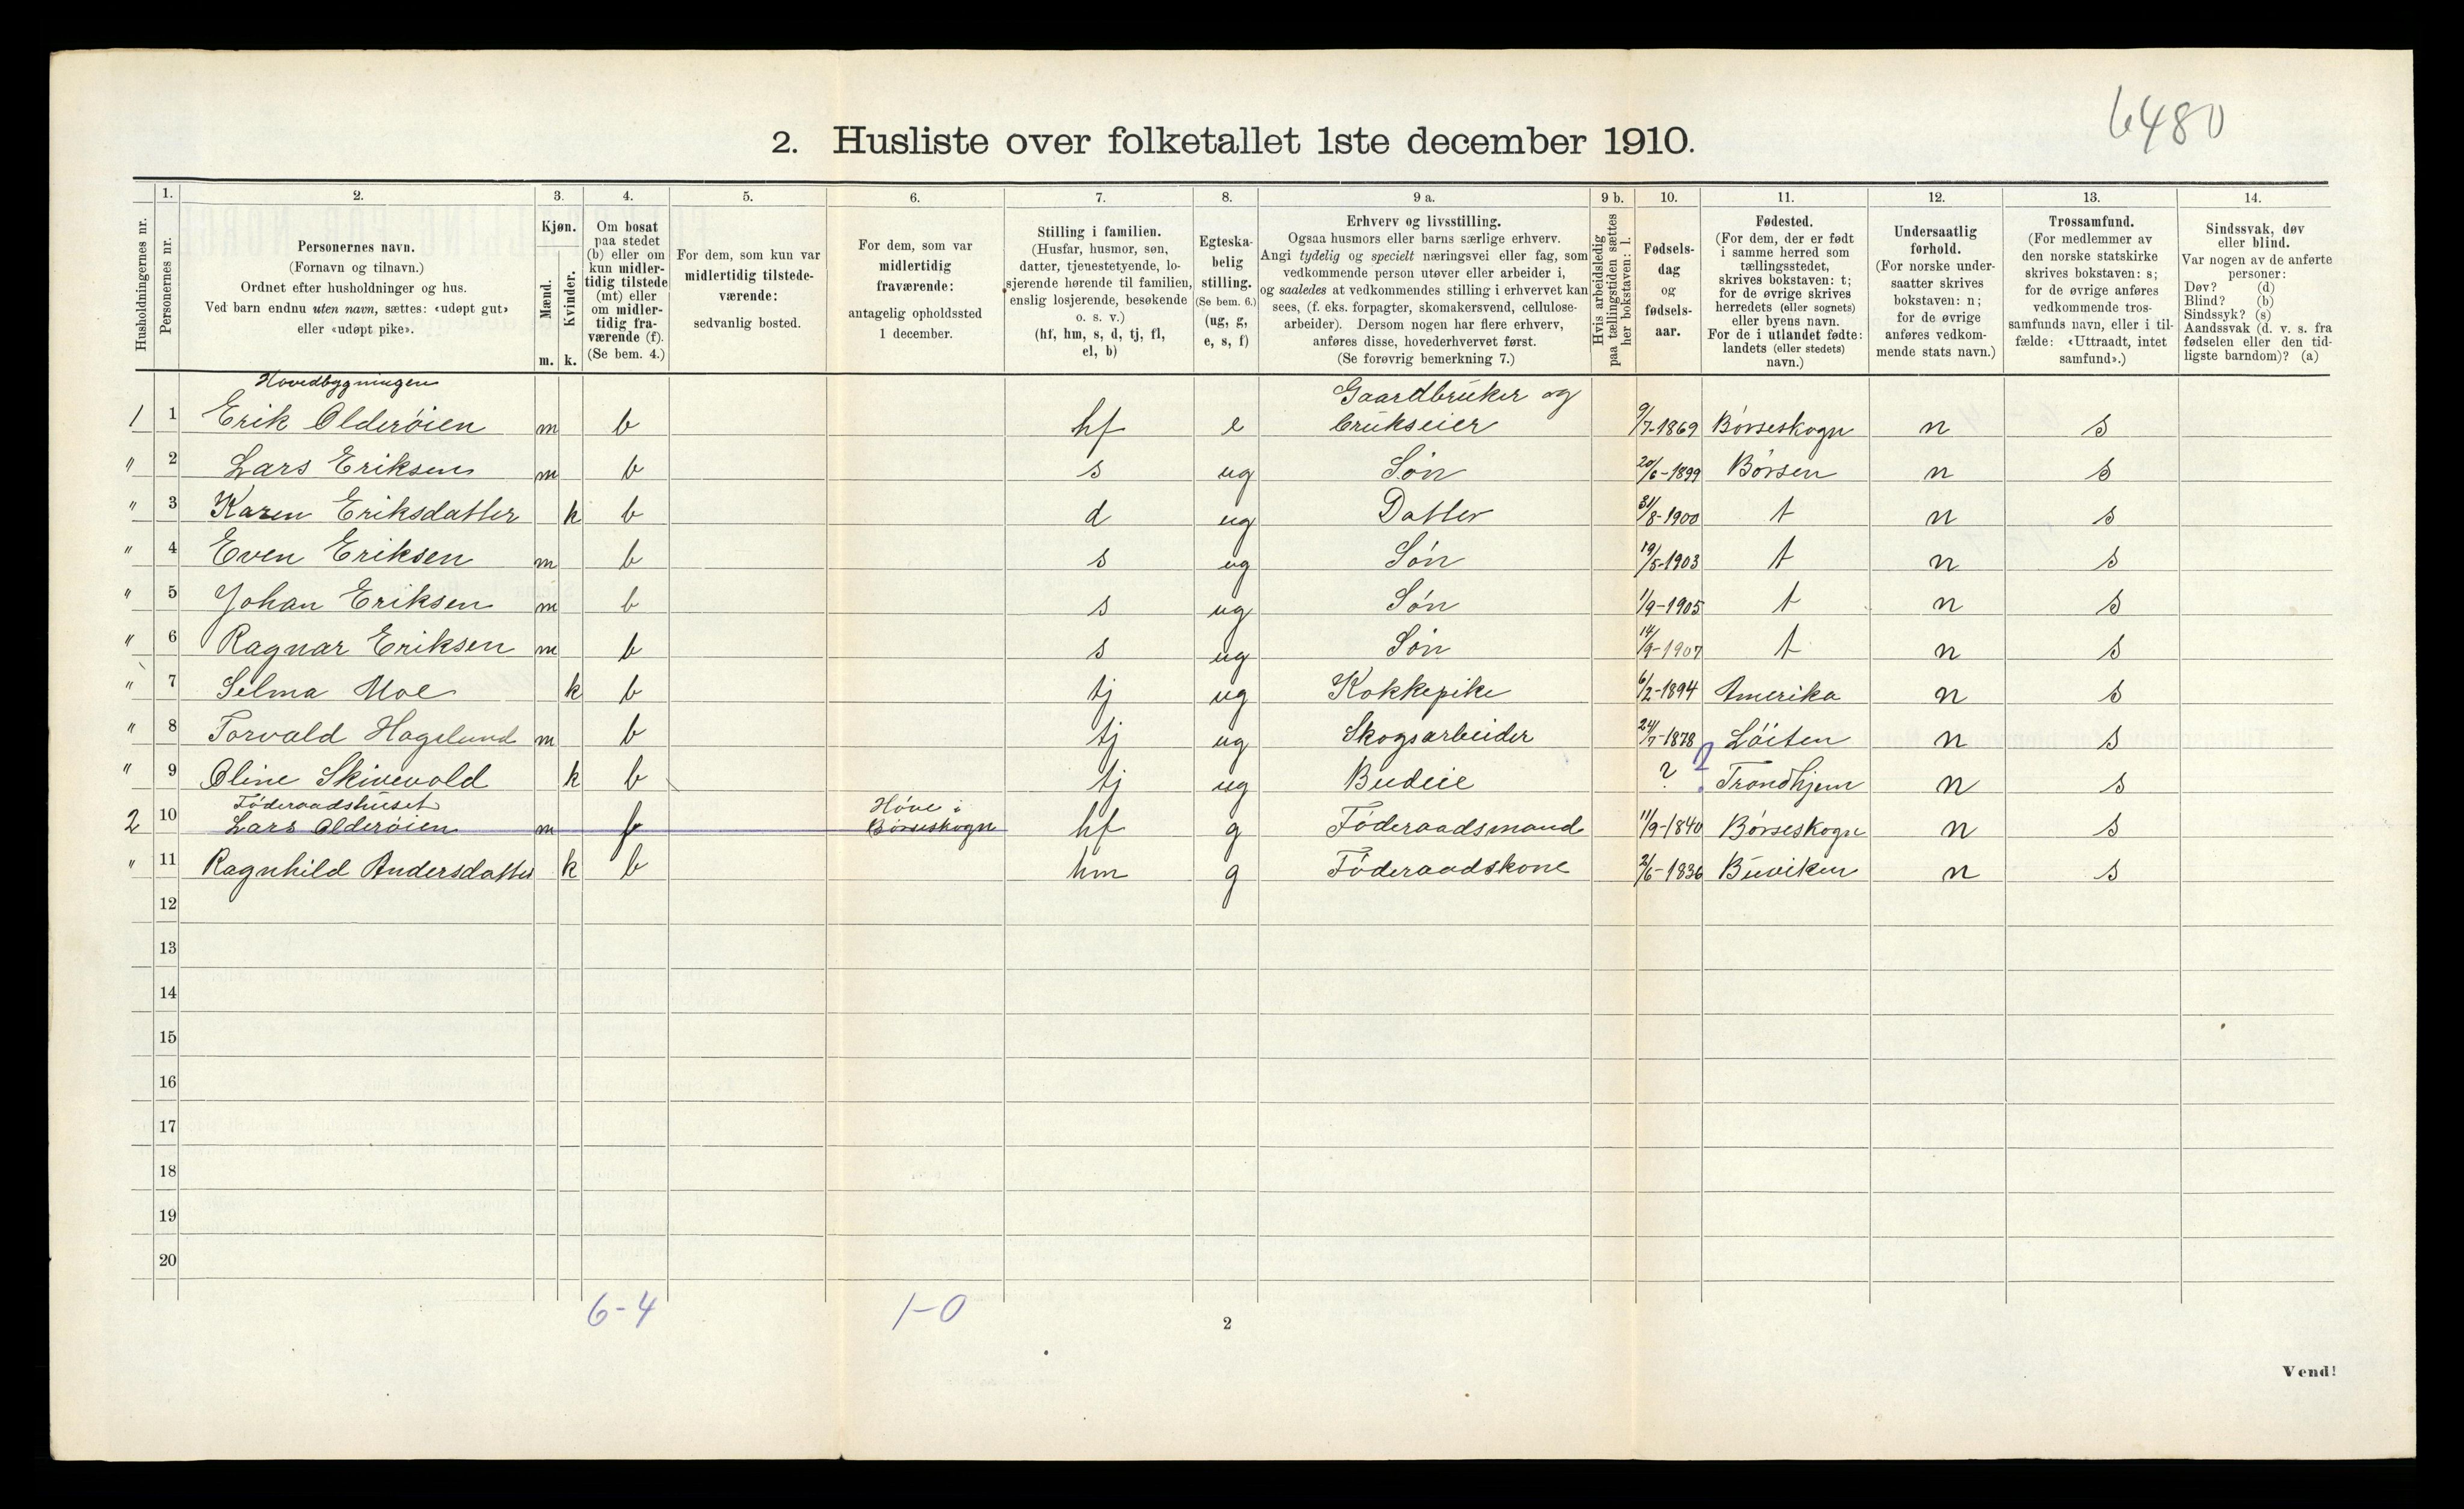 6480
2. Husliste over folketallet 1ste december 1910.
Husholdningernes nr.
1.
Personernes nr.
2.
Personernes navn.
(Fornavn og tilnavn.)
Ordnet efter husholdninger og hus.
Ved barn endnu uten navn, sættes: «udøpt gut»
eller «udøpt pike».
3.
Kjøn.
Mænd.
Kvinder.
m. k.
4.
Om bosat
paa stedet
(b) eller om
kun midler-
tidig tilstede
(mt) eller
om midler-
tidig fra-
værende (f).
(Se bem. 4.)
5.
For dem, som kun var
midlertidig tilstede-
værende:
sedvanlig bosted.
6.
For dem, som var
midlertidig
fraværende:
antagelig opholdssted
1 december.
7.
Stilling i familien.
(Husfar, husmor, søn,
datter, tjenestetyende, lo-
sjerende hørende til familien,
enslig losjerende, besøkende
o. s. v.)
(hf, hm, s, d, tj, fl,
el, b)
8.
Egteska-
belig
stilling.
(Se bem. 6.)
(ug, g,
e, s, f)
9 a.
Erhverv og livsstilling.
Ogsaa husmors eller barns særlige erhverv.
Angi tydelig og specielt næringsvei eller fag, som
vedkommende person utøver eller arbeider i,
og saaledes at vedkommendes stilling i erhvervet kan
sees, (f. eks. forpagter, skomakersvend, cellulose-
arbeider). Dersom nogen har flere erhverv,
anføres disse, hovederhvervet først.
(Se forøvrig bemerkning 7.)
9 b.
Hvis arbeidsledig
paa tællingstiden sættes
her bokstaven: l.
10.
Fødsels-
dag
og
fødsels-
aar.
11.
Fødested.
(For dem, der er født
i samme herred som
tællingsstedet,
skrives bokstaven: t;
for de øvrige skrives
herredets (eller sognets)
eller byens navn.
For de i utlandet fødte:
landets (eller stedets)
navn.)
12.
Undersaatlig
forhold.
(For norske under-
saatter skrives
bokstaven: n;
for de øvrige
anføres vedkom-
mende stats navn.)
13.
Trossamfund.
(For medlemmer av
den norske statskirke
skrives bokstaven: s;
for de øvrige anføres
vedkommende tros-
samfunds navn, eller i til-
fælde: «Uttraadt, intet
samfund».)
14.
Sindssvak, døv
eller blind.
Var nogen av de anførte
personer:
Døv? (d)
Blind? (b)
Sindssyk? (s)
Aandssvak (d. v. s. fra
fødselen eller den tid-
ligste barndom)? (a)
Hovedbygningen
Gaardbruker og
1 1 Erik Olderøien m b hf e brukseier 9/7-1869 Børseskogn n s
" 2 Lars Eriksen m b s ug Søn 20/6-1899 Børsen n s
" 3 Karen Eriksdatter k b d ug Datter 31/8-1900 t n s
" 4 Even Eriksen m b s ug Søn 19/5-1903 t n s
" 5 Johan Eriksen m b s ug Søn 1/9-1905 t n s
" 6 Ragnar Eriksen m b s ug Søn 14/9-1907 t n s
" 7 Selma Moe k b tj ug Kokkepike 6/2-1894 Amerika n s
" 8 Torvald Hagelund m b tj ug Skogsarbeider 24/7-1878 Løiten n s
" 9 Oline Skivevold k b tj ug Budeie ? ? Trondhjem n s
Føderaadshuset
Høve i
2 10 Lars Olderøien m f Børseskogn hf g Føderaadsmand 11/9-1840 Børseskogn n s
" 11 Ragnhild Andersdatter k b hm g Føderaadskone 2/6-1836 Buviken n s
12
13
14
15
16
17
18
19
20
6-4 1-0
2
Vend!